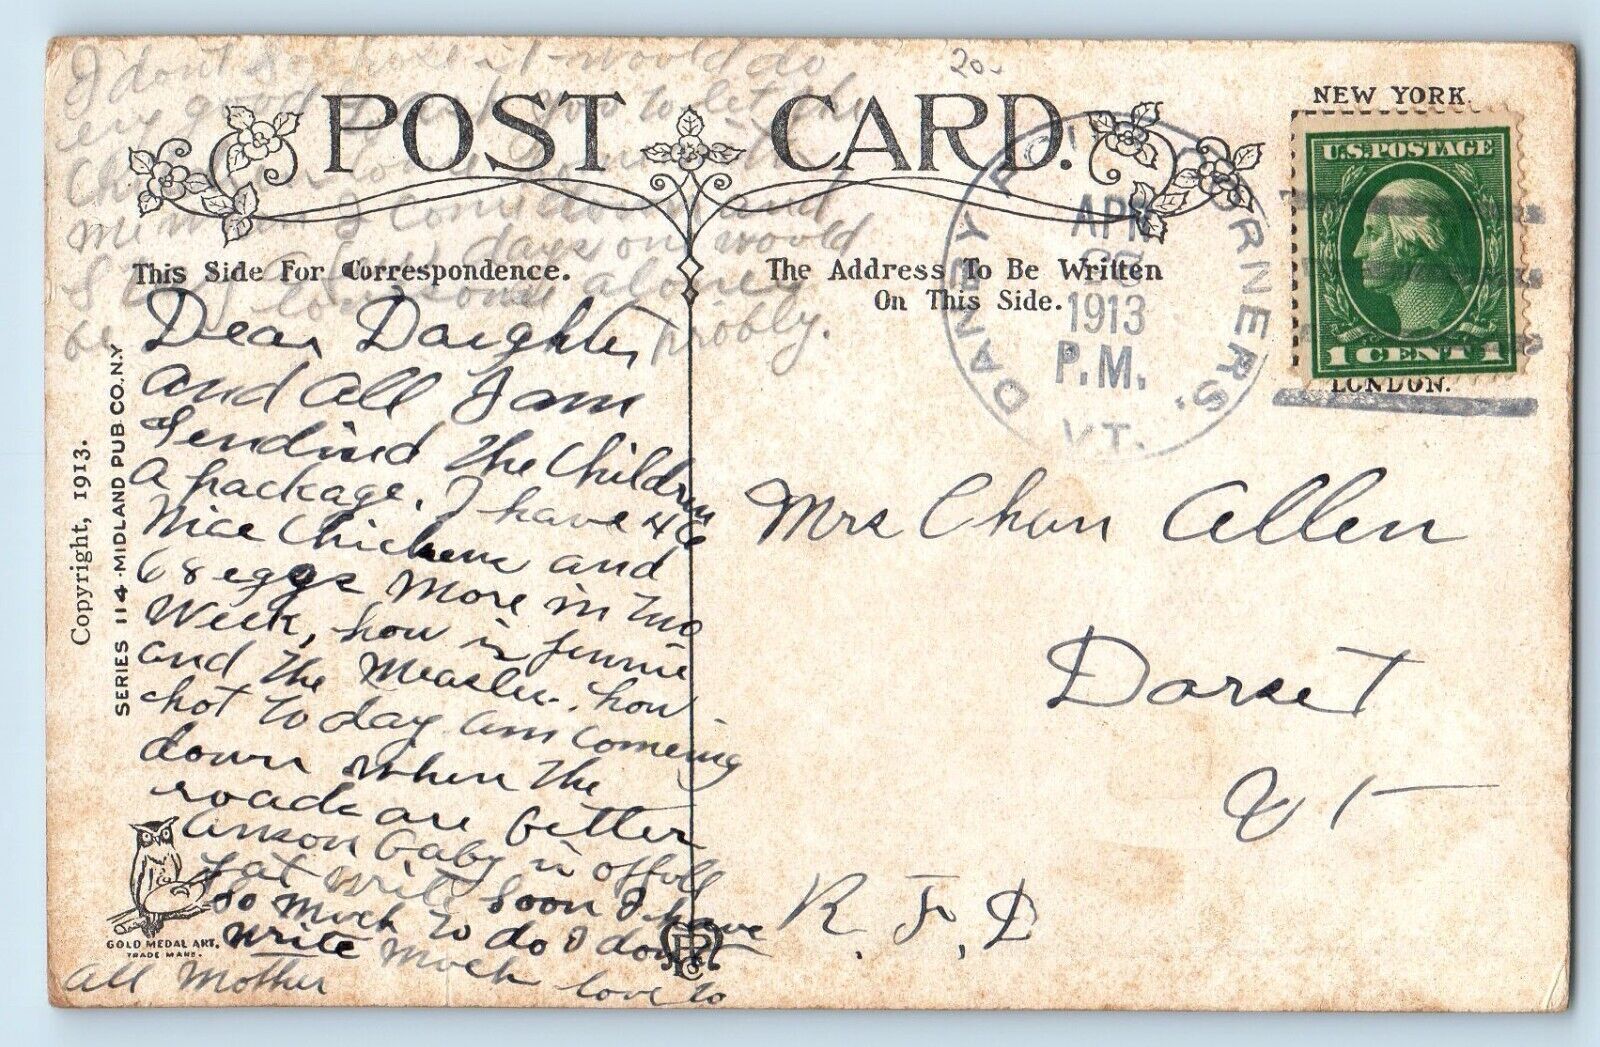 I dont Suphose it would do
good to let the
Ch
mi I Come down and
Stay a few days on would
be lonesome alone
probly.
20.
POST CARD.
NEW YORK.
U.S. POSTAGE
1 CENT 1
LONDON.
DANBY FOUR CORNERS, VT.
APR
1913
P.M.
This Side For Correspondence.
The Address To Be Written
On This Side.
Dear Daughter
and all I am
Sendind the Children
a package. I have 46
Nice Chickens and
68 eggs More in two
Week, how is Jennie
and the Measles. how
hot to day am comeing
down when the
roads are better
anson baby is offoll
fat write Soon I have
So Much to do I dont
write Moch love to
all Mother
Copyright, 1913.
SERIES 114-MIDLAND PUB. CO. N.Y
GOLD MEDAL ART.
TRADE MARK.
Mrs Chan Allen
Dorset
Vt
R. F. D